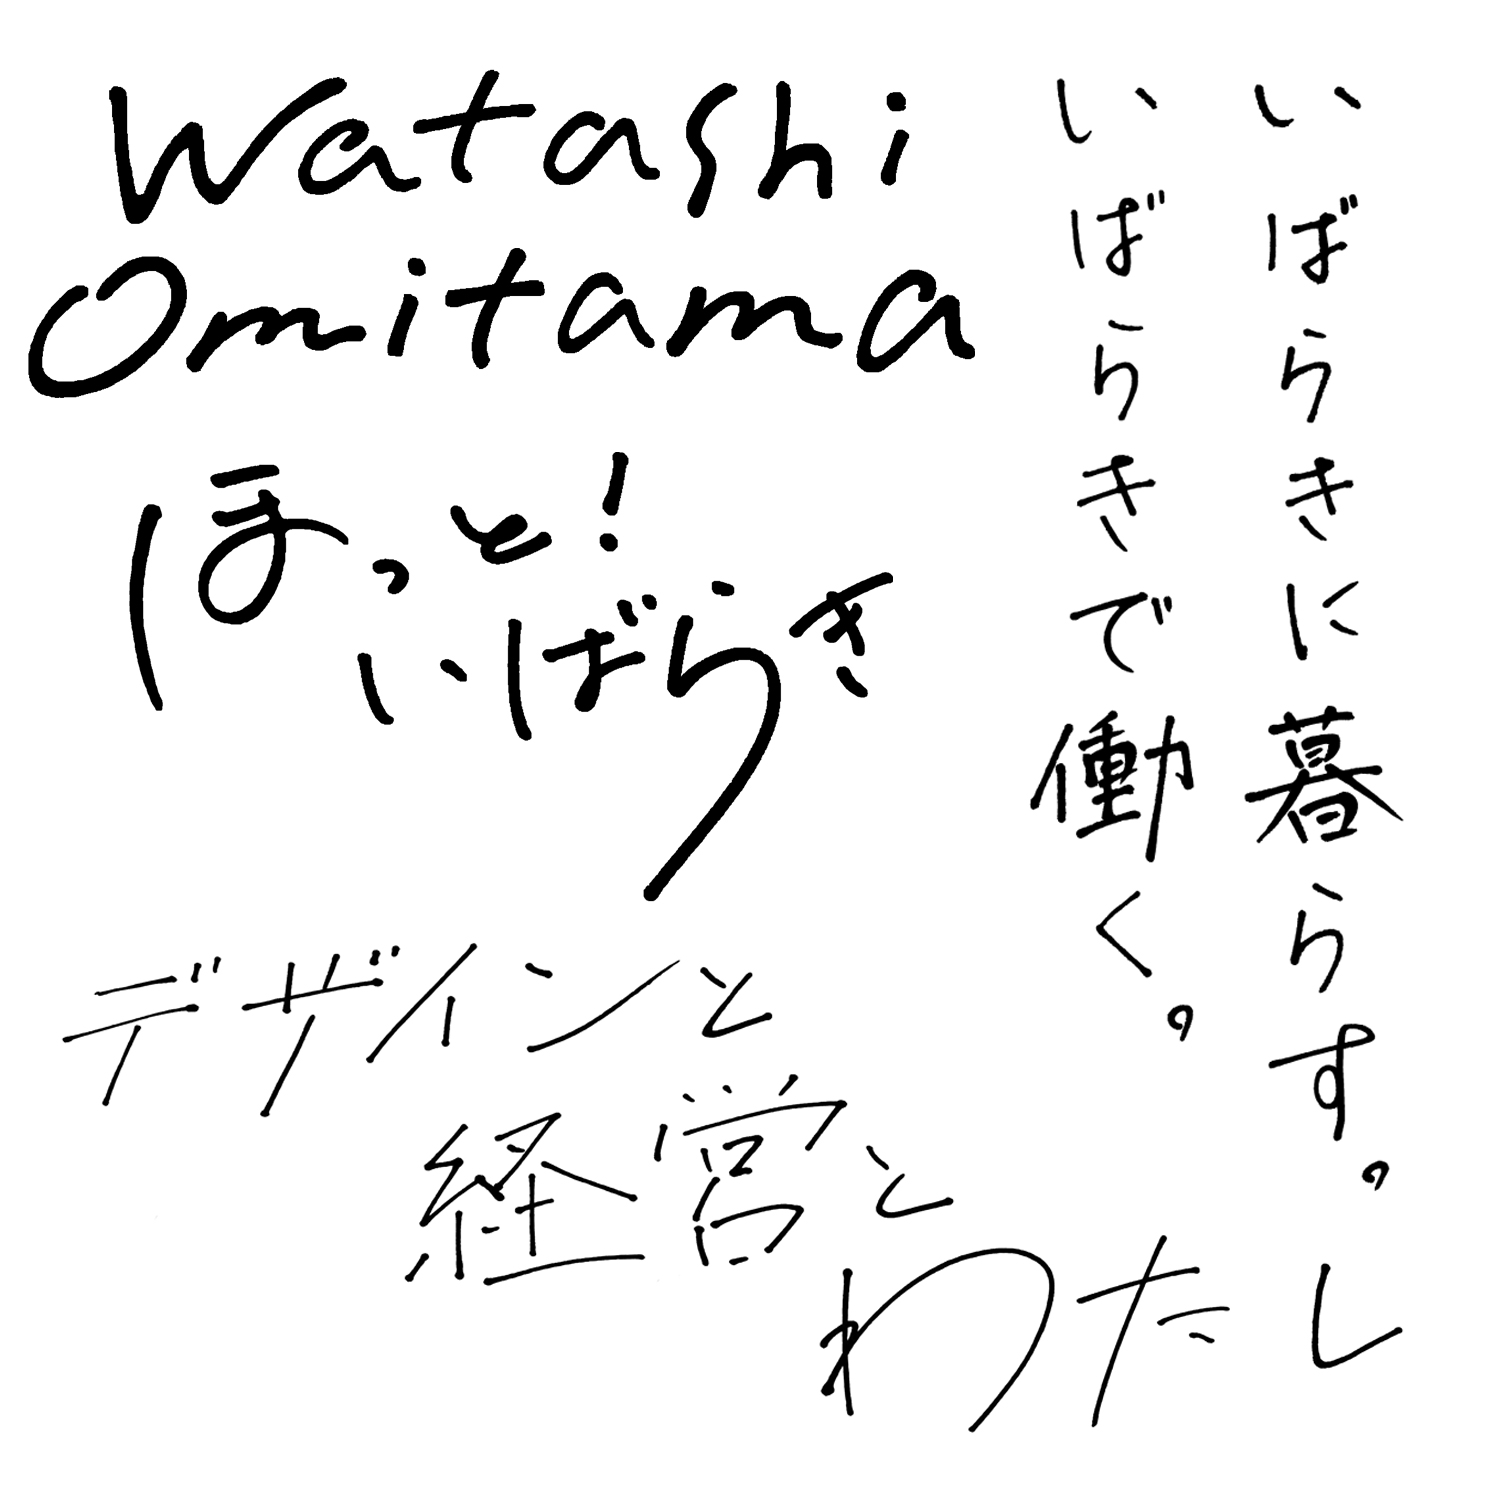 Watashi
Omitama
ほっと!
いばらき
いばらきに暮らす。
いばらきで働く。
デザインと
経営と
わたし